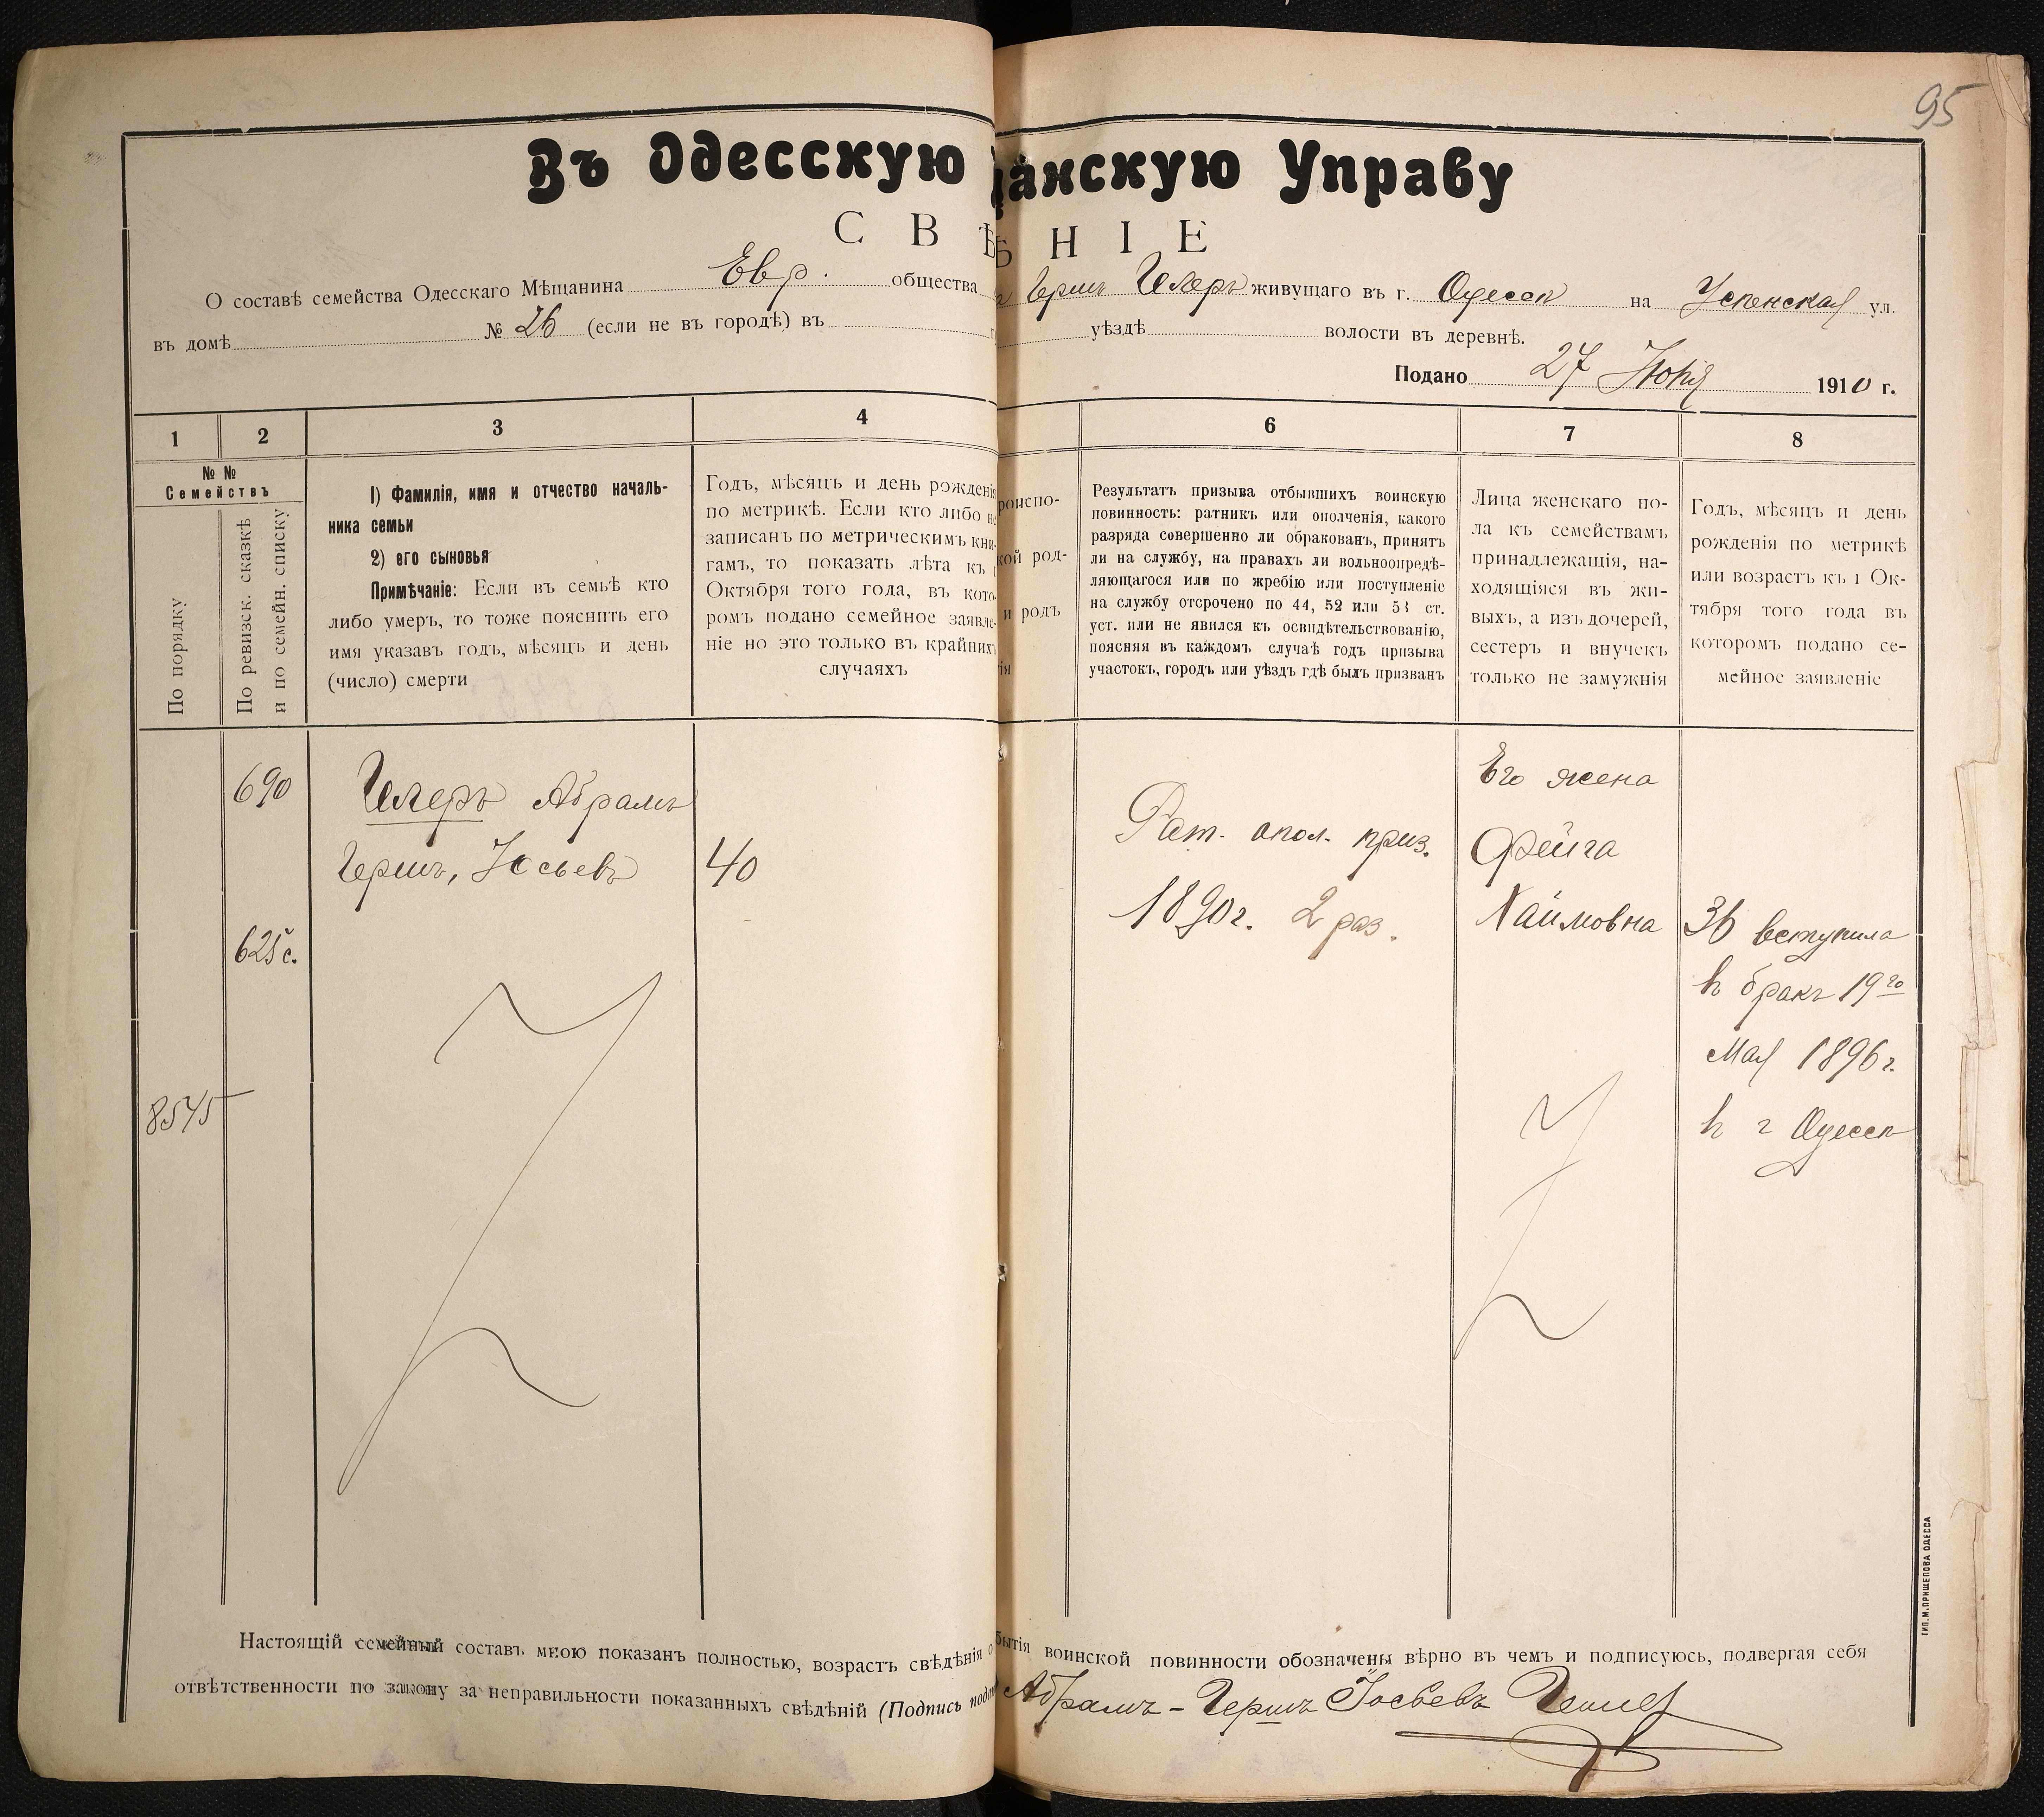 95
Въ Одесскую щанскую Управу
СВѢ ѢНІЕ
О составѣ семейства Одесскаго Мѣщанина Евр. общества Герш Гелеръ живущаго въ г. Одессѣ на Успенская ул.
въ домѣ № 26 (если не въ городѣ) въ уѣздѣ волости въ деревнѣ.
Подано 27 1910 г.
1 2 3 4 6 7 8
№ №
Семействъ
По порядку
По ревизск. сказкѣ
и по семейн. списку
1) Фамилія, имя и отчество началь-
ника семьи
2) его сыновья
Примѣчаніе: Если въ семьѣ кто
либо умеръ, то тоже пояснить его
имя указавъ годъ, мѣсяцъ и день
(число) смерти
Годъ, мѣсяцъ и день рожденія
по метрикѣ. Если кто либо не
записанъ по метрическимъ кни-
гамъ, то показать лѣта къ 1
Октября того года, въ кото-
ромъ подано семейное заявле-
ніе но это только въ крайнихъ
случаяхъ
роиспо-
кой род-
и родъ
ія
Результатъ призыва отбывшихъ воинскую
повинность: ратникъ или ополченія, какого
разряда совершенно ли обракованъ, принятъ
ли на службу, на правахъ ли вольноопредѣ-
ляющагося или по жребію или поступленіе
на службу отсрочено по 44, 52 или 53 ст.
уст. или не явился къ освидѣтельствованію,
поясняя въ каждомъ случаѣ годъ призыва
участокъ, городъ или уѣздъ гдѣ былъ призванъ
Лица женскаго по-
ла къ семействамъ
принадлежащія, на-
ходящіяся въ жи-
выхъ, а изъ дочерей,
сестеръ и внучекъ
только не замужнія
Годъ, мѣсяцъ и день
рожденія по метрикѣ
или возрастъ къ 1 Ок-
тября того года въ
которомъ подано се-
мейное заявленіе
690
625 с.
8545
Гелеръ Абрамъ
Гершъ, Іосьевъ
40
Рат. опол. приз.
1890 г. 2 раз.
Его жена
Фейга
Хаимовна
36 вступила
в бракъ 19го
Мая 1896 г.
в г Одессѣ
Настоящій семейный составъ мною показанъ полностью, возрастъ свѣдѣнія о бытія воинской повинности обозначены вѣрно въ чемъ и подписуюсь, подвергая себя
отвѣтственности по закону за неправильности показанныхъ свѣдѣній (Подпись подав Абрамъ-Гершъ Іосьевъ Гелеръ
ТИП. М. ПРИЩЕПОВА ОДЕССА